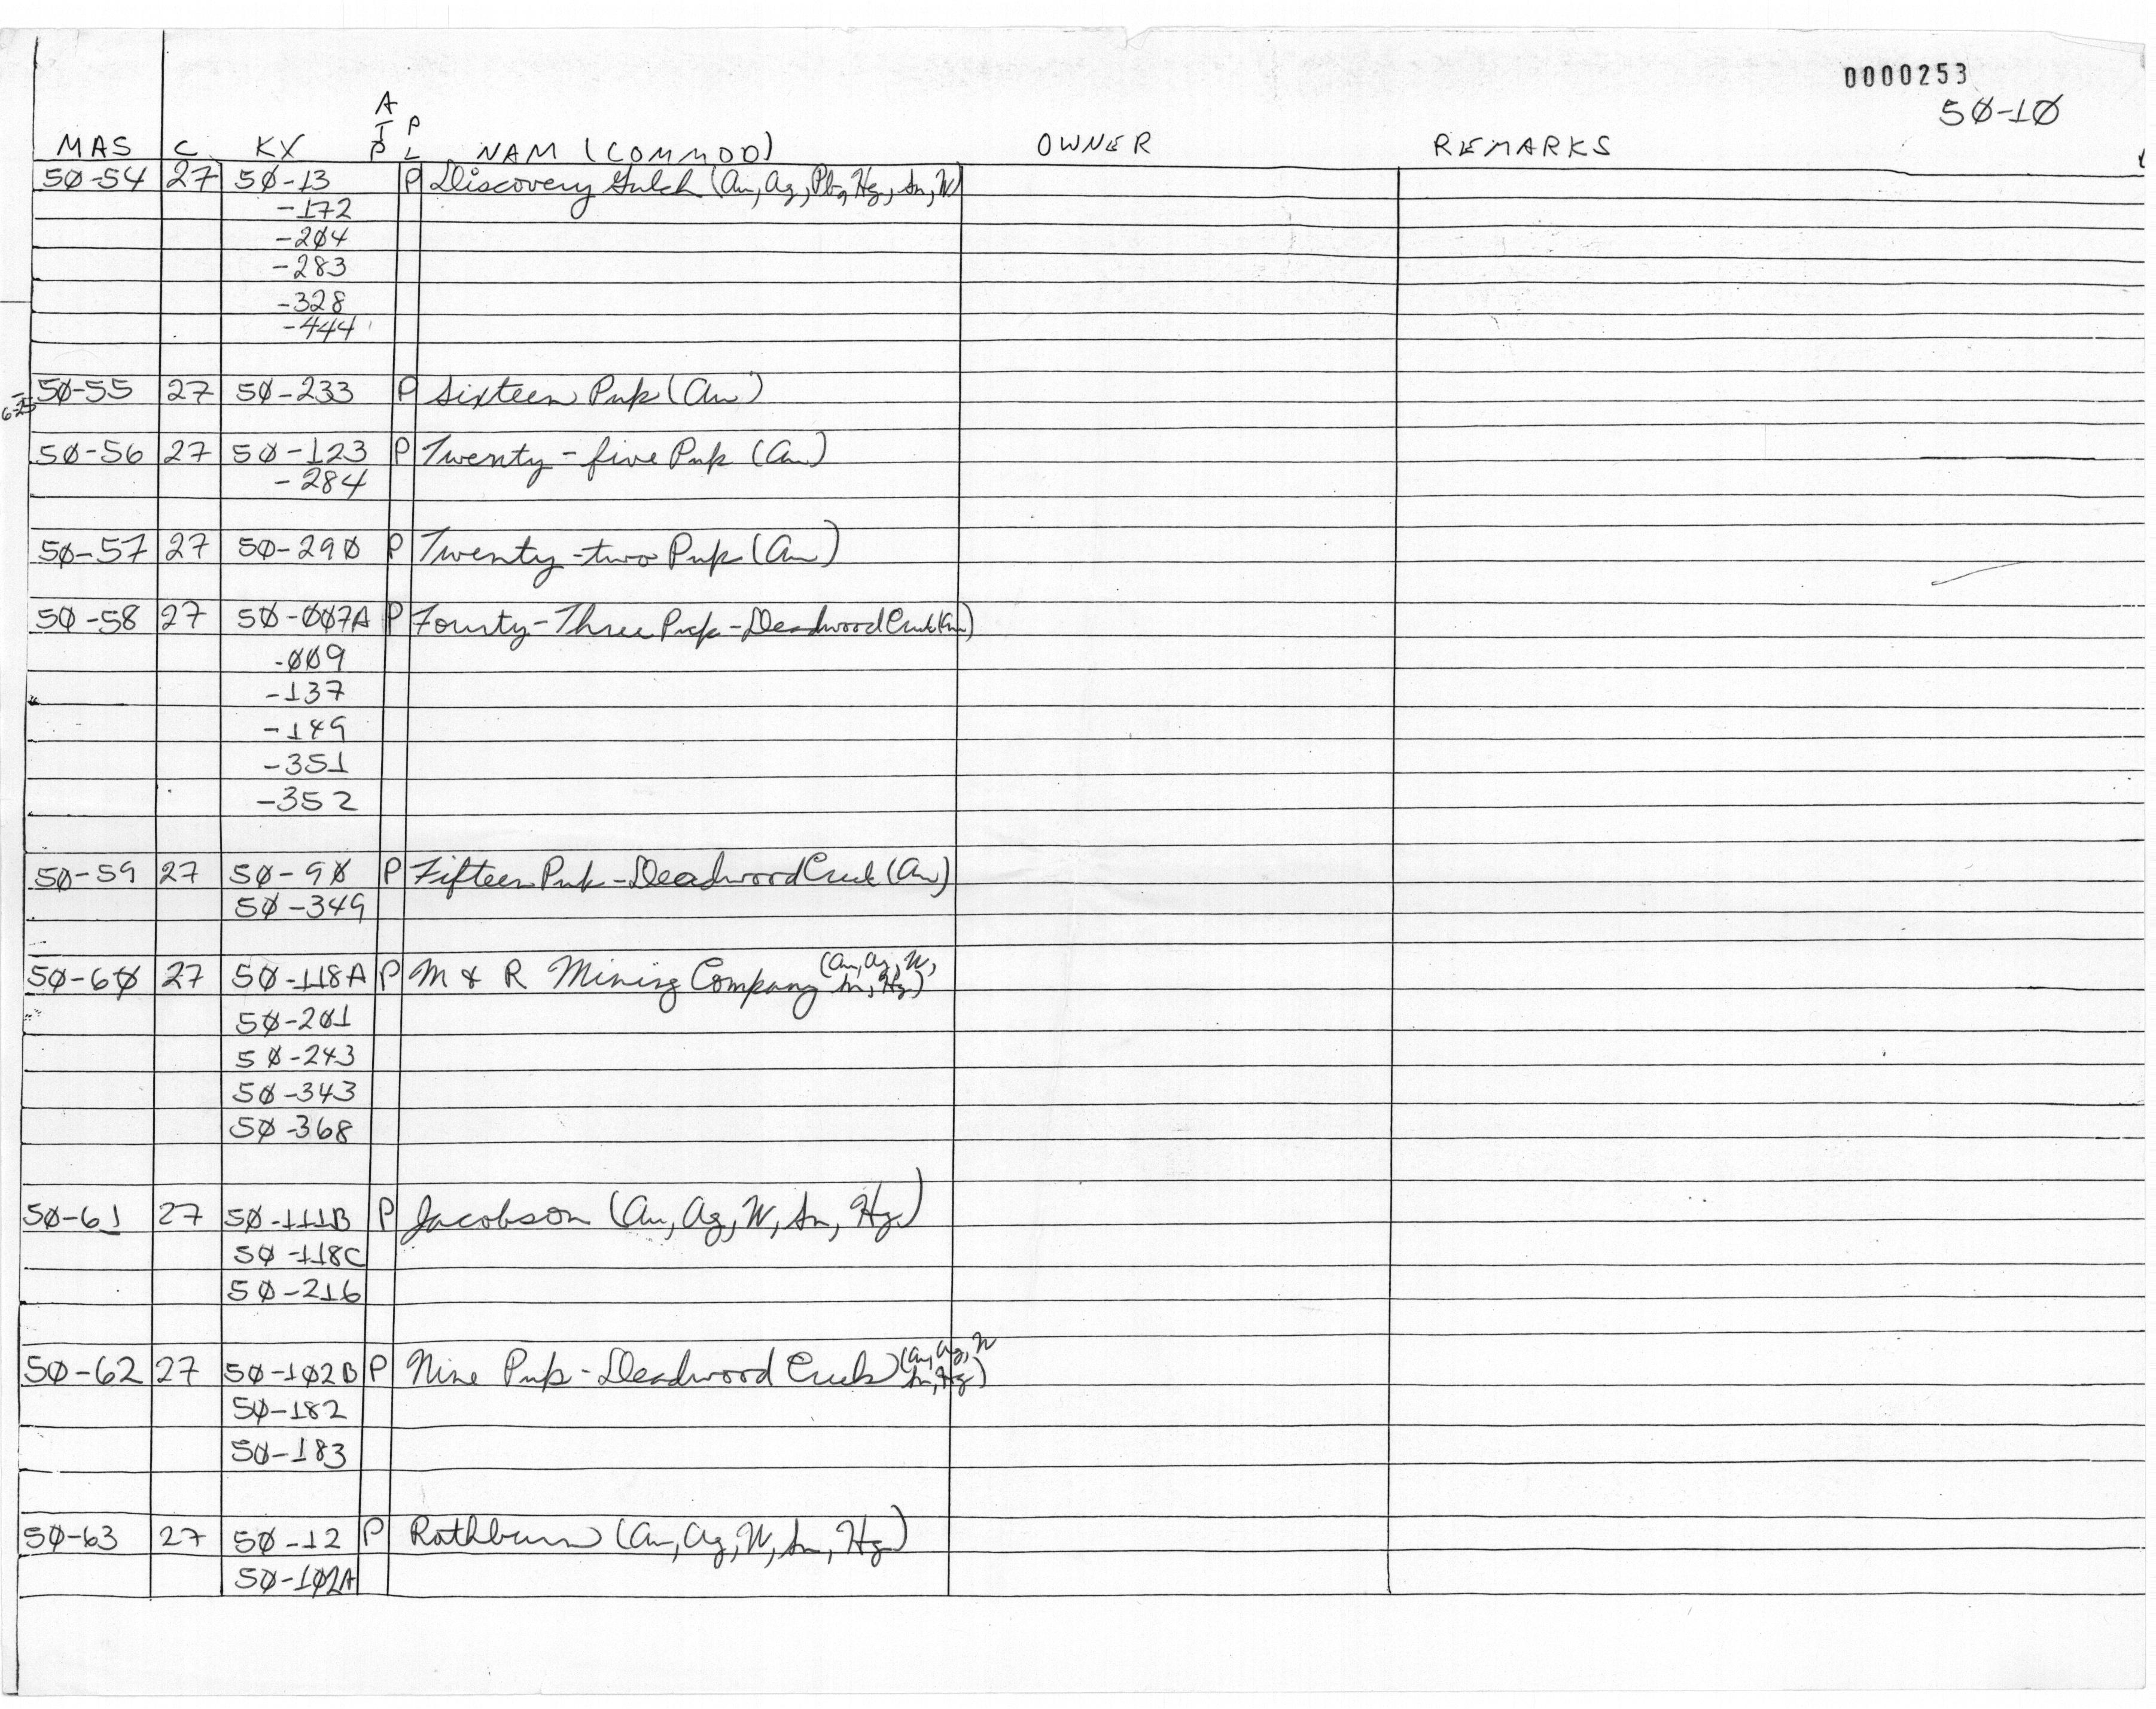 0000253
50-10
A
T P
P L
MAS C KX NAM (COMMOD) OWNER REMARKS
50-54 27 50-13 P Discovery Gulch (Au, Ag, Pb, Hg, Sn, W)
-172
-204
-283
-328
-444
50-55 27 50-233 P Sixteen Pup (Au)
50-56 27 50-123 P Twenty-five Pup (Au)
-284
50-57 27 50-290 P Twenty-two Pup (Au)
50-58 27 50-007A P Fourty-Three Pup-Deadwood Creek (Au)
-009
-137
-149
-351
-352
50-59 27 50-90 P Fifteen Pup-Deadwood Creek (Au)
50-349
50-60 27 50-118A P M & R Mining Company (Au, Ag, W,
Sn, Hg)
50-201
50-243
50-343
50-368
50-61 27 50-111B P Jacobson (Au, Ag, W, Sn, Hg)
50-118C
50-216
50-62 27 50-102B P Nine Pup-Deadwood Creek (Au, Ag, W
Sn, Hg)
50-182
50-183
50-63 27 50-12 P Rothburn (Au, Ag, W, Sn, Hg)
50-102A